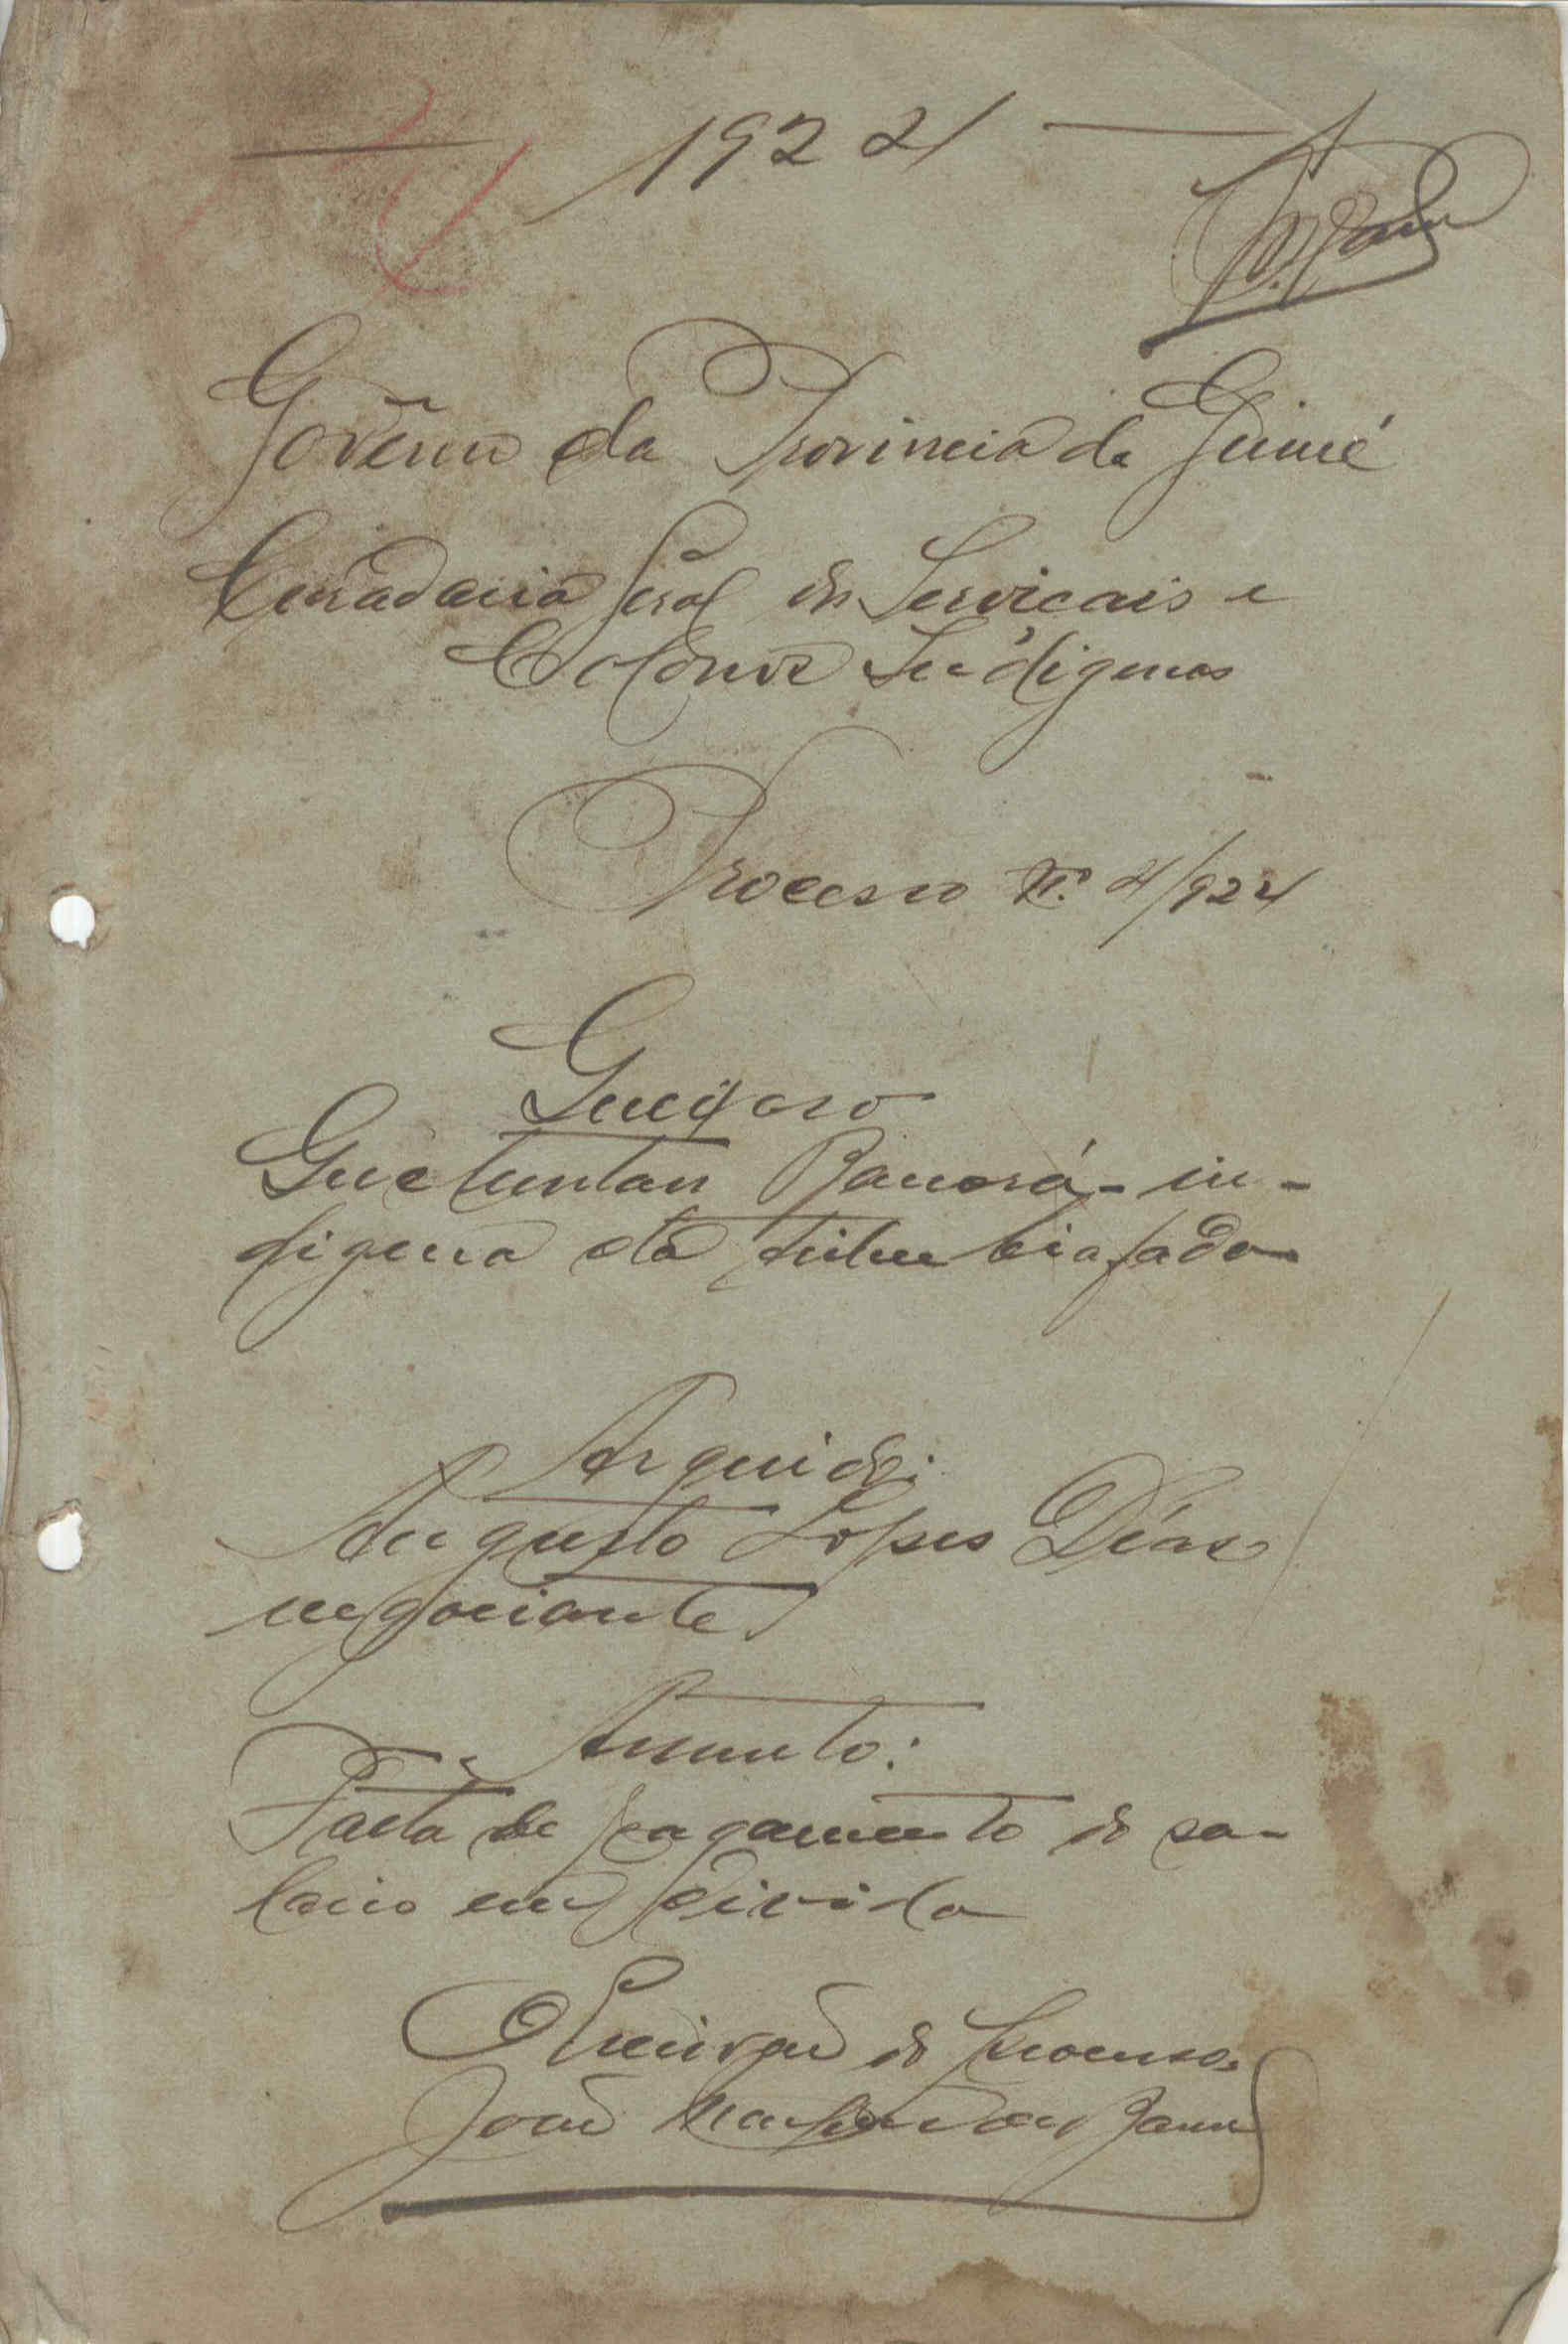 1922
Govêrno da Provincia da Guiné
Curadoria Geral dos Serviçais e
Colonos Indígenas
Processo N.º 4/922
Queixoso
Quetuntan Banorá - in-
digena da tribu biafada
Arguido:
Augusto Lopes Dias
negociante
Assunto:
Falta de pagamento de sa-
lario em divida
O Escrivão do processo,
João